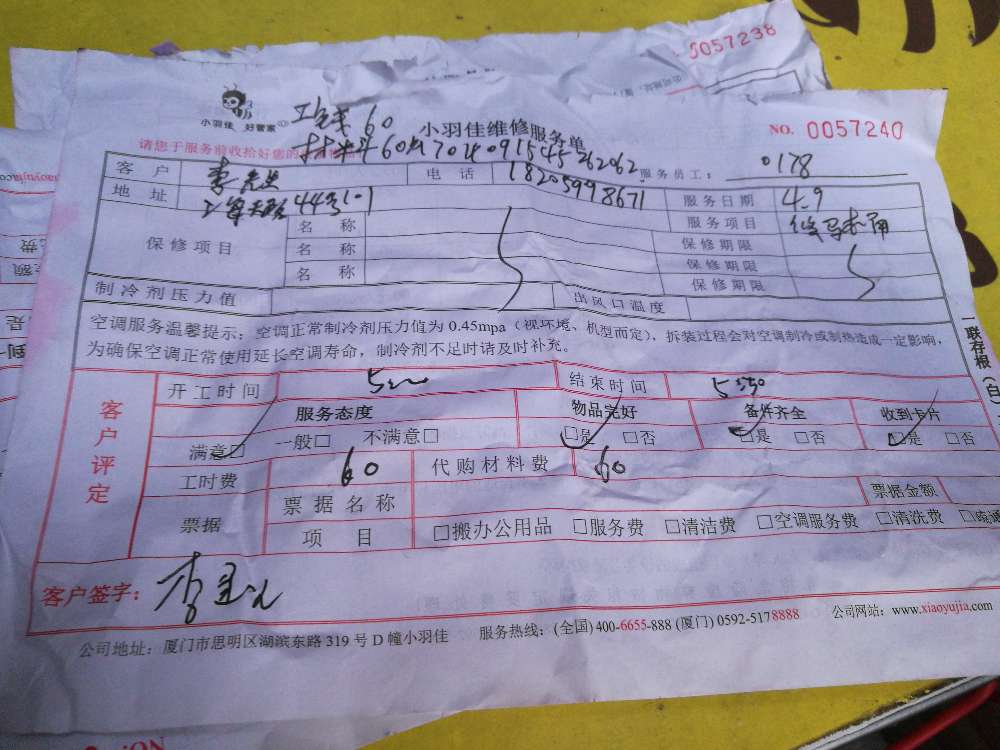 0057238
小羽佳 好管家
工钱60
小羽佳维修服务单
NO. 0057240
请您于服务前收拾好您的
服务员工： 0178
客户 李先生 电话 18205998671 服务日期 4.9
地址 443 101 服务项目
保修项目 名称 保修期限
名称 保修期限
名称 保修期限
制冷剂压力值 出风口温度
空调服务温馨提示：空调正常制冷剂压力值为0.45mpa（视环境、机型而定），拆装过程会对空调制冷或制热造成一定影响，
为确保空调正常使用延长空调寿命，制冷剂不足时请及时补充。
一联存根（白
客户评定
开工时间 结束时间
服务态度 物品完好 备件齐全 收到卡片
满意□ 一般□ 不满意□ □是 □否 □是 □否 □是 □否
工时费 60 代购材料费 60
票据 票据名称 票据金额
项目 □搬办公用品 □服务费 □清洁费 □空调服务费 □清洗费 □疏通
客户签字：
公司地址：厦门市思明区湖滨东路319号D幢小羽佳 服务热线：(全国)400-6655-888 (厦门) 0592-5178888 公司网站：www.xiaoyujia.com